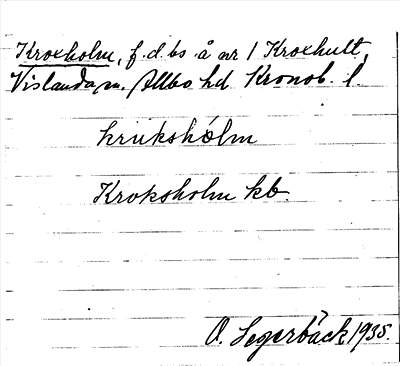 Kroxholm, f.d. bs å nr 1 Kroxhult,
Vislanda, sn. Allbo hd Kronob. l.
krukshólm
Kroksholm kb.
O. Segerbäck 1935.